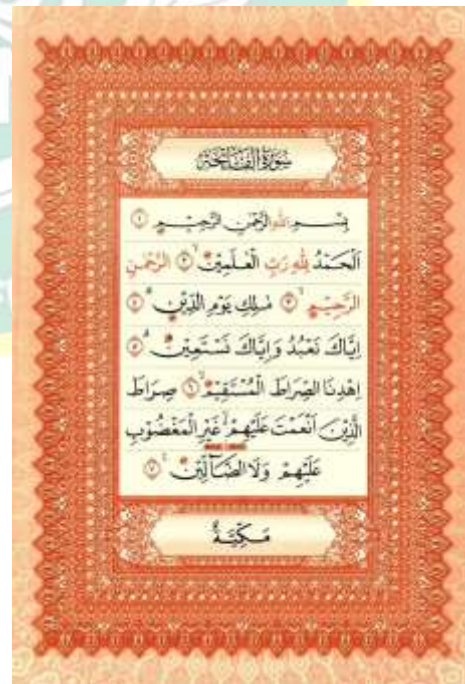 سُورَةُ الْفَاتِحَةِ
بِسْمِ اللهِ الرَّحْمٰنِ الرَّحِيْمِ ١
اَلْحَمْدُ لِلّٰهِ رَبِّ الْعٰلَمِيْنَۙ ٢ الرَّحْمٰنِ
الرَّحِيْمِۙ ٣ مٰلِكِ يَوْمِ الدِّيْنِۗ ٤
اِيَّاكَ نَعْبُدُ وَاِيَّاكَ نَسْتَعِيْنُۗ ٥
اِهْدِنَا الصِّرَاطَ الْمُسْتَقِيْمَۙ ٦ صِرَاطَ
الَّذِيْنَ اَنْعَمْتَ عَلَيْهِمْ ەۙ غَيْرِ الْمَغْضُوْبِ
عَلَيْهِمْ وَلَا الضَّاۤلِّيْنَ ٧
مَكِّيَّةٌ